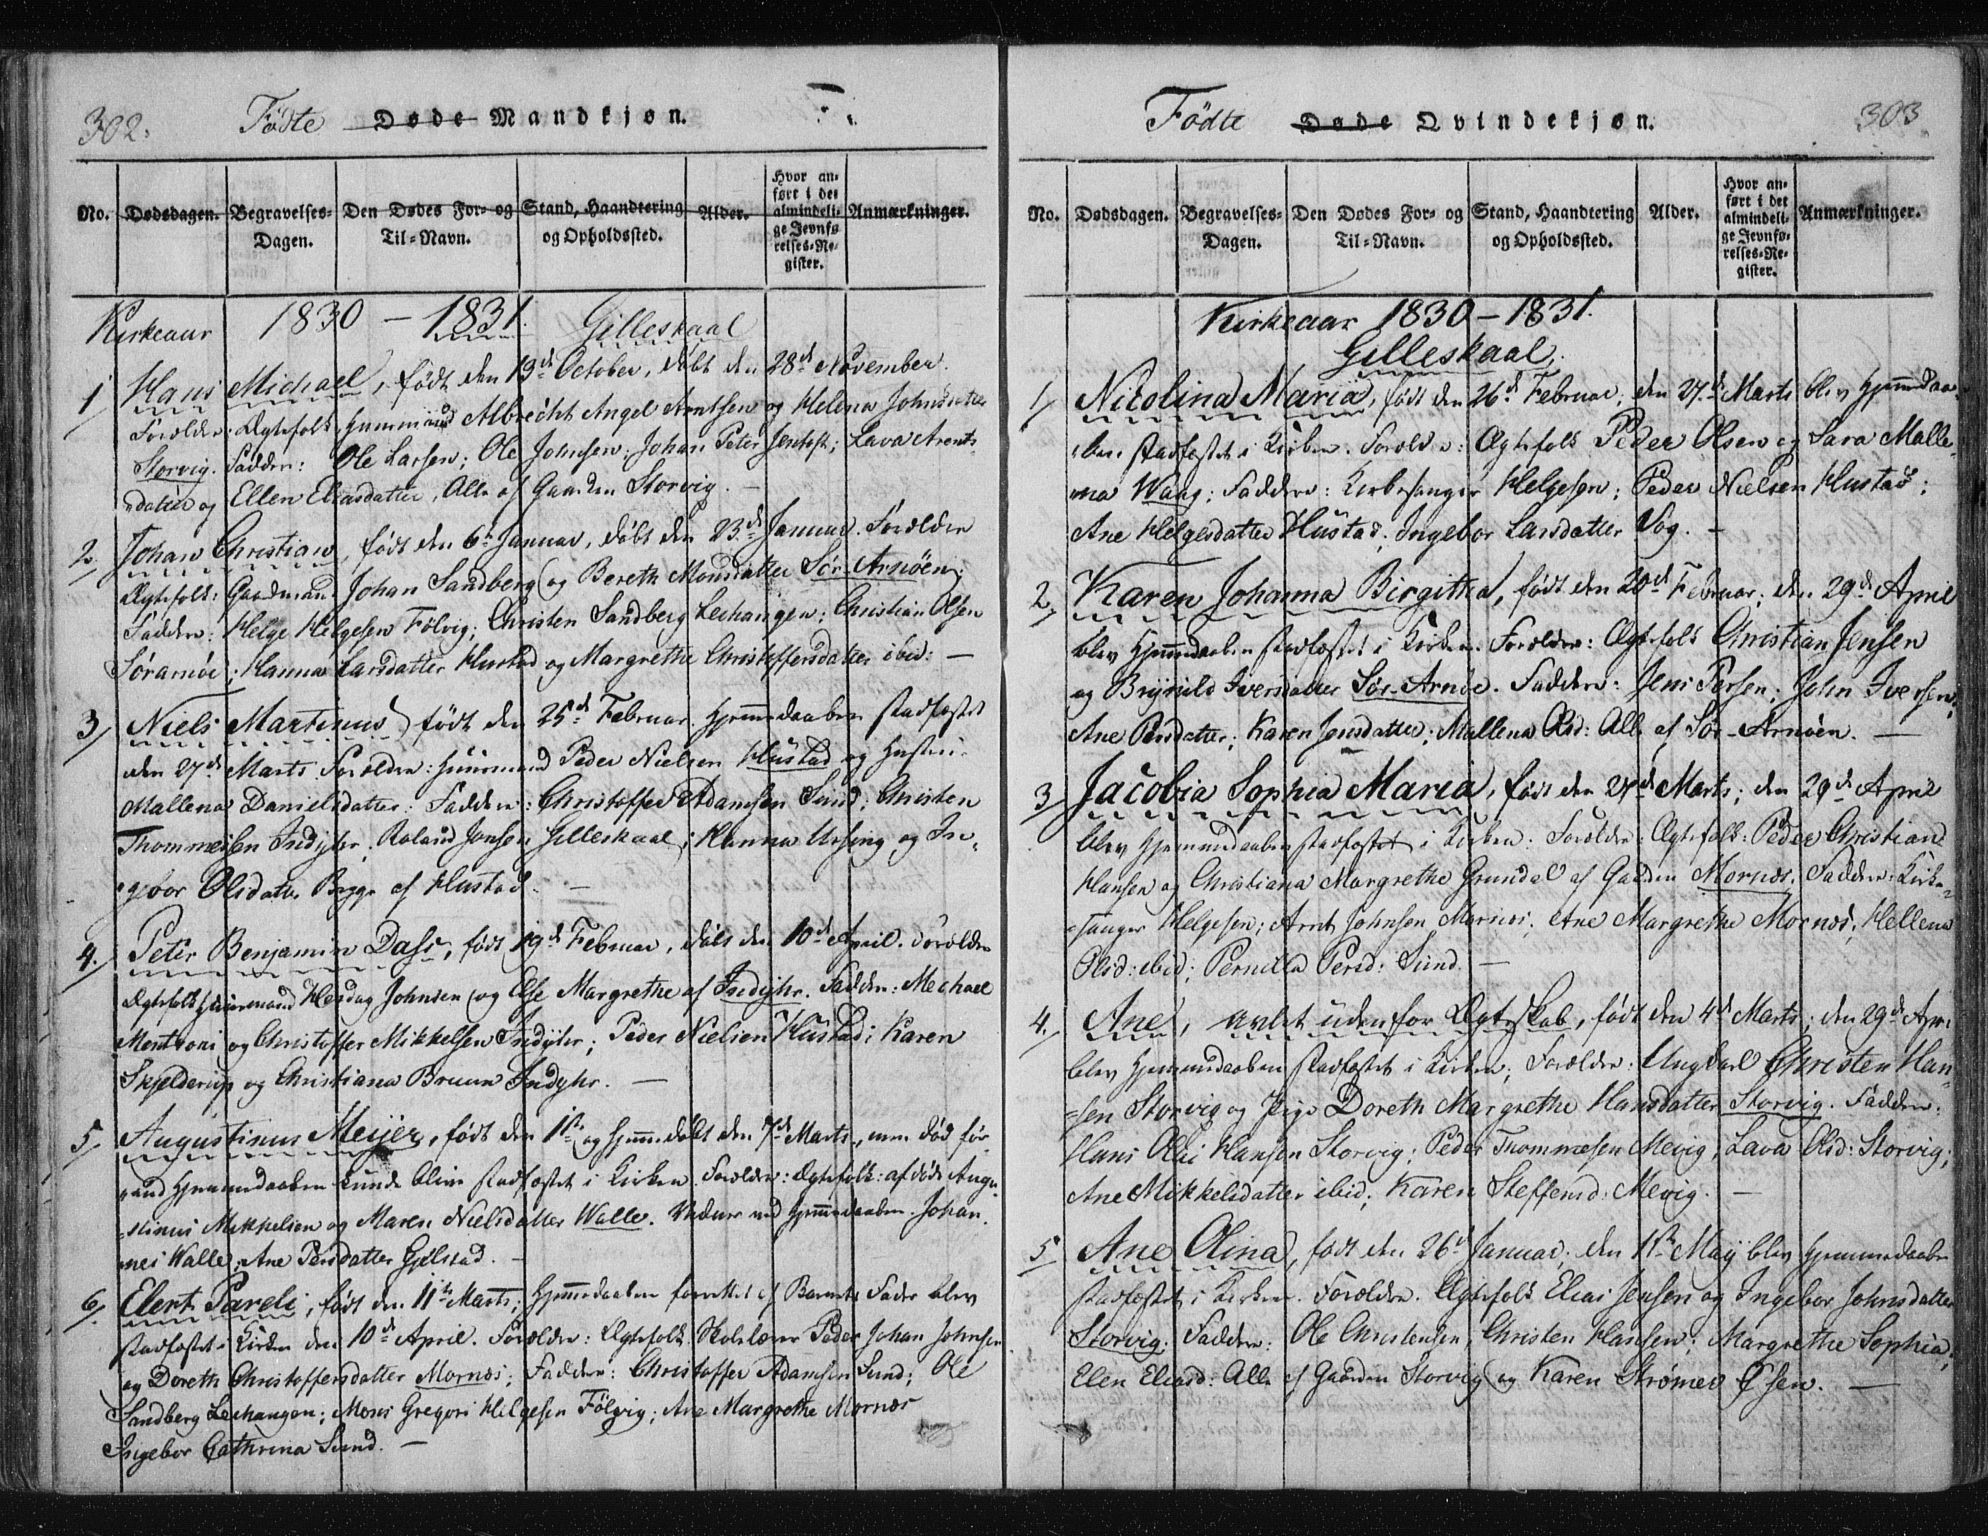 302.
Födte Døde Mandkjøn.
No. Dødsdagen. Begravelses-Dagen. Den Dødes For- og Til-Navn. Stand, Haandtering og Opholdssted. Alder. Hvor anført i det almindelige Jevnførelses-Register. Anmærkninger.
Kirkeaar 1830 - 1831. Gilleskaal
1 Hans Michael, født den 19de October, døbt den 28de November.
Forældre: Ægtefolk, Huusmand Albrecht Angel Arntsen og Helena Johnsdatter
Storvig. Faddere: Ole Larsen; Ole Johnsen; Johan Peter Jentoft; Lava Arents
-datter og Ellen Eliasdatter, Alle af Gaarden Storvig. -
2. Johan Christian, født den 6te Januar, døbt den 23de Januar. Forældre
Ægtefolk: Gaardmand Johan Sandberg og Bereth Monsdatter Sör-Arnöen;
Faddere: Helge Helgesen Fölvig; Christen Sandberg Lechangen; Christian Olsen
Sörarnöe; Hanna Larsdatter Hustad og Margrethe Christoffersdatter ibid: -
3) Niels Martinus, født den 25de Februar. Hjemmedaaben stadfæstet
den 27de Marts. Forældre: Huusmand Peder Nielsen Hustad og Hustru
Mallena Danielsdatter: Faddere: Christoffer Adamsen Sund; Christen
Thommesen Indyhr, Roland Jonsen Gilleskaal; Hanna Ursing og In-
-gebor Olsdatter Bygge af Hustad. -
4. Peter Benjamin Dass, født 19de Februar, døbt den 10de April. Forældre
Ægtefolk Huusmand Hesdag Johnsen og Else Margrethe af Indyhr. Faddere: Michael
Mentzoni og Christoffer Mikkelsen Indyhr; Peder Nielsen Hustad; Karen
Skjelderup og Christiana Bruun Indyhr. -
5. Augustinus Meijer, født den 1ste og hjemmedøbt den 7de Marts, men død før-
end Hjemmedaaben kunde blive stadfæstet i Kirken. Forældre: Ægtefolk: afdøde Augu-
-stinus Mikkelsen og Maren Nielsdatter Walle. Vidner ved Hjemmedaaben. Johan-
nes Walle, Ane Persdatter Gjelstad. -
6. Elert Pareli, født den 11te Marts; Hjemmedaaben forrettet af Barnets Fader blev
stadfæstet i Kirken den 10de April. Forældre: Ægtefolk Skolelærer Peder Johan Johnsen
og Doreth Christoffersdatter Mornæs; Faddere: Christoffer Adamsen Sund; Ole
Sandberg Lechangen; Mons Gregori Helgesen Fölvig; Ane Margrethe Mornæs
Ingebor Cathrina Sund. -
303
Födte Døde Qvindekjøn.
No. Dødsdagen. Begravelses-Dagen. Den Dødes For- og Til-Navn. Stand, Haandtering og Opholdssted. Alder. Hvor anført i det almindelige Jevnførelses-Register. Anmærkninger.
Kirkeaar 1830 - 1831.
Gilleskaal.
1, Nicolina Maria, født den 26de Februar, den 27de Marts blev Hjemmedaa-
-ben stadfæstet i Kirken. Forældre: Ægtefolk Peder Olsen og Sara Malle-
na Waag; Faddere: Kirkesanger Helgesen; Peder Nielsen Hustad;
Ane Helgesdatter Hustad; Ingebor Larsdatter Vog. -
2, Karen Johanna Birgitha, født den 20de Februar; den 29de April
blev Hjemmedaaben stadfæstet i Kirken. Forældre: Ægtefolk Christian Jensen
og Brynild Iversdatter Sör-Arnöe. Faddere: Jens Persen; John Iversen;
Ane Persdatter; Karen Jensdatter; Mallena Olsd: Alle af Sör-Arnöen. -
3, Jacobia Sophia Maria, født den 27de Marts; den 29de April
blev Hjemmedaaben stadfæstet i Kirken. Forældre: Ægtefolk: Peder Christian
Hansen og Christiana Margrethe Grundal af Gaarden Mornæs, Faddere: Kirke-
-sanger Helgesen; Arnt Johnsen Marnæs; Ane Margrethe Mornæs; Hellena
Olsd: ibid; Pernilla Persd: Sund. -
4. Ane, avlet uden for Ægteskab, født den 4de Marts; den 29de Apri
blev Hjemmedaaben stadfæstet i Kirken; Forældre: Ungkarl Christen Han-
-sen Storvig og Pige Doreth Margrethe Hansdatter Storvig. Faddere:
Hans Olai Hansen Storvig; Peder Thommesen Mevig, Lava Olsd: Storvig;
Ane Mikkelsdatter ibid; Karen Steffensd: Mevig. -
5 Ane Olina, født den 26de Januar, den 11te Maij blev Hjemmedaaben
stadfæstet i Kirken. Forældre. Ægtefolk Elias Jensen og Ingebor Johnsdatter
Storvig; Faddere: Ole Christensen, Christen Hansen; Margrethe Sophia;
Elen Eliasd: Alle af Gaarden Storvig og Karen Strømer